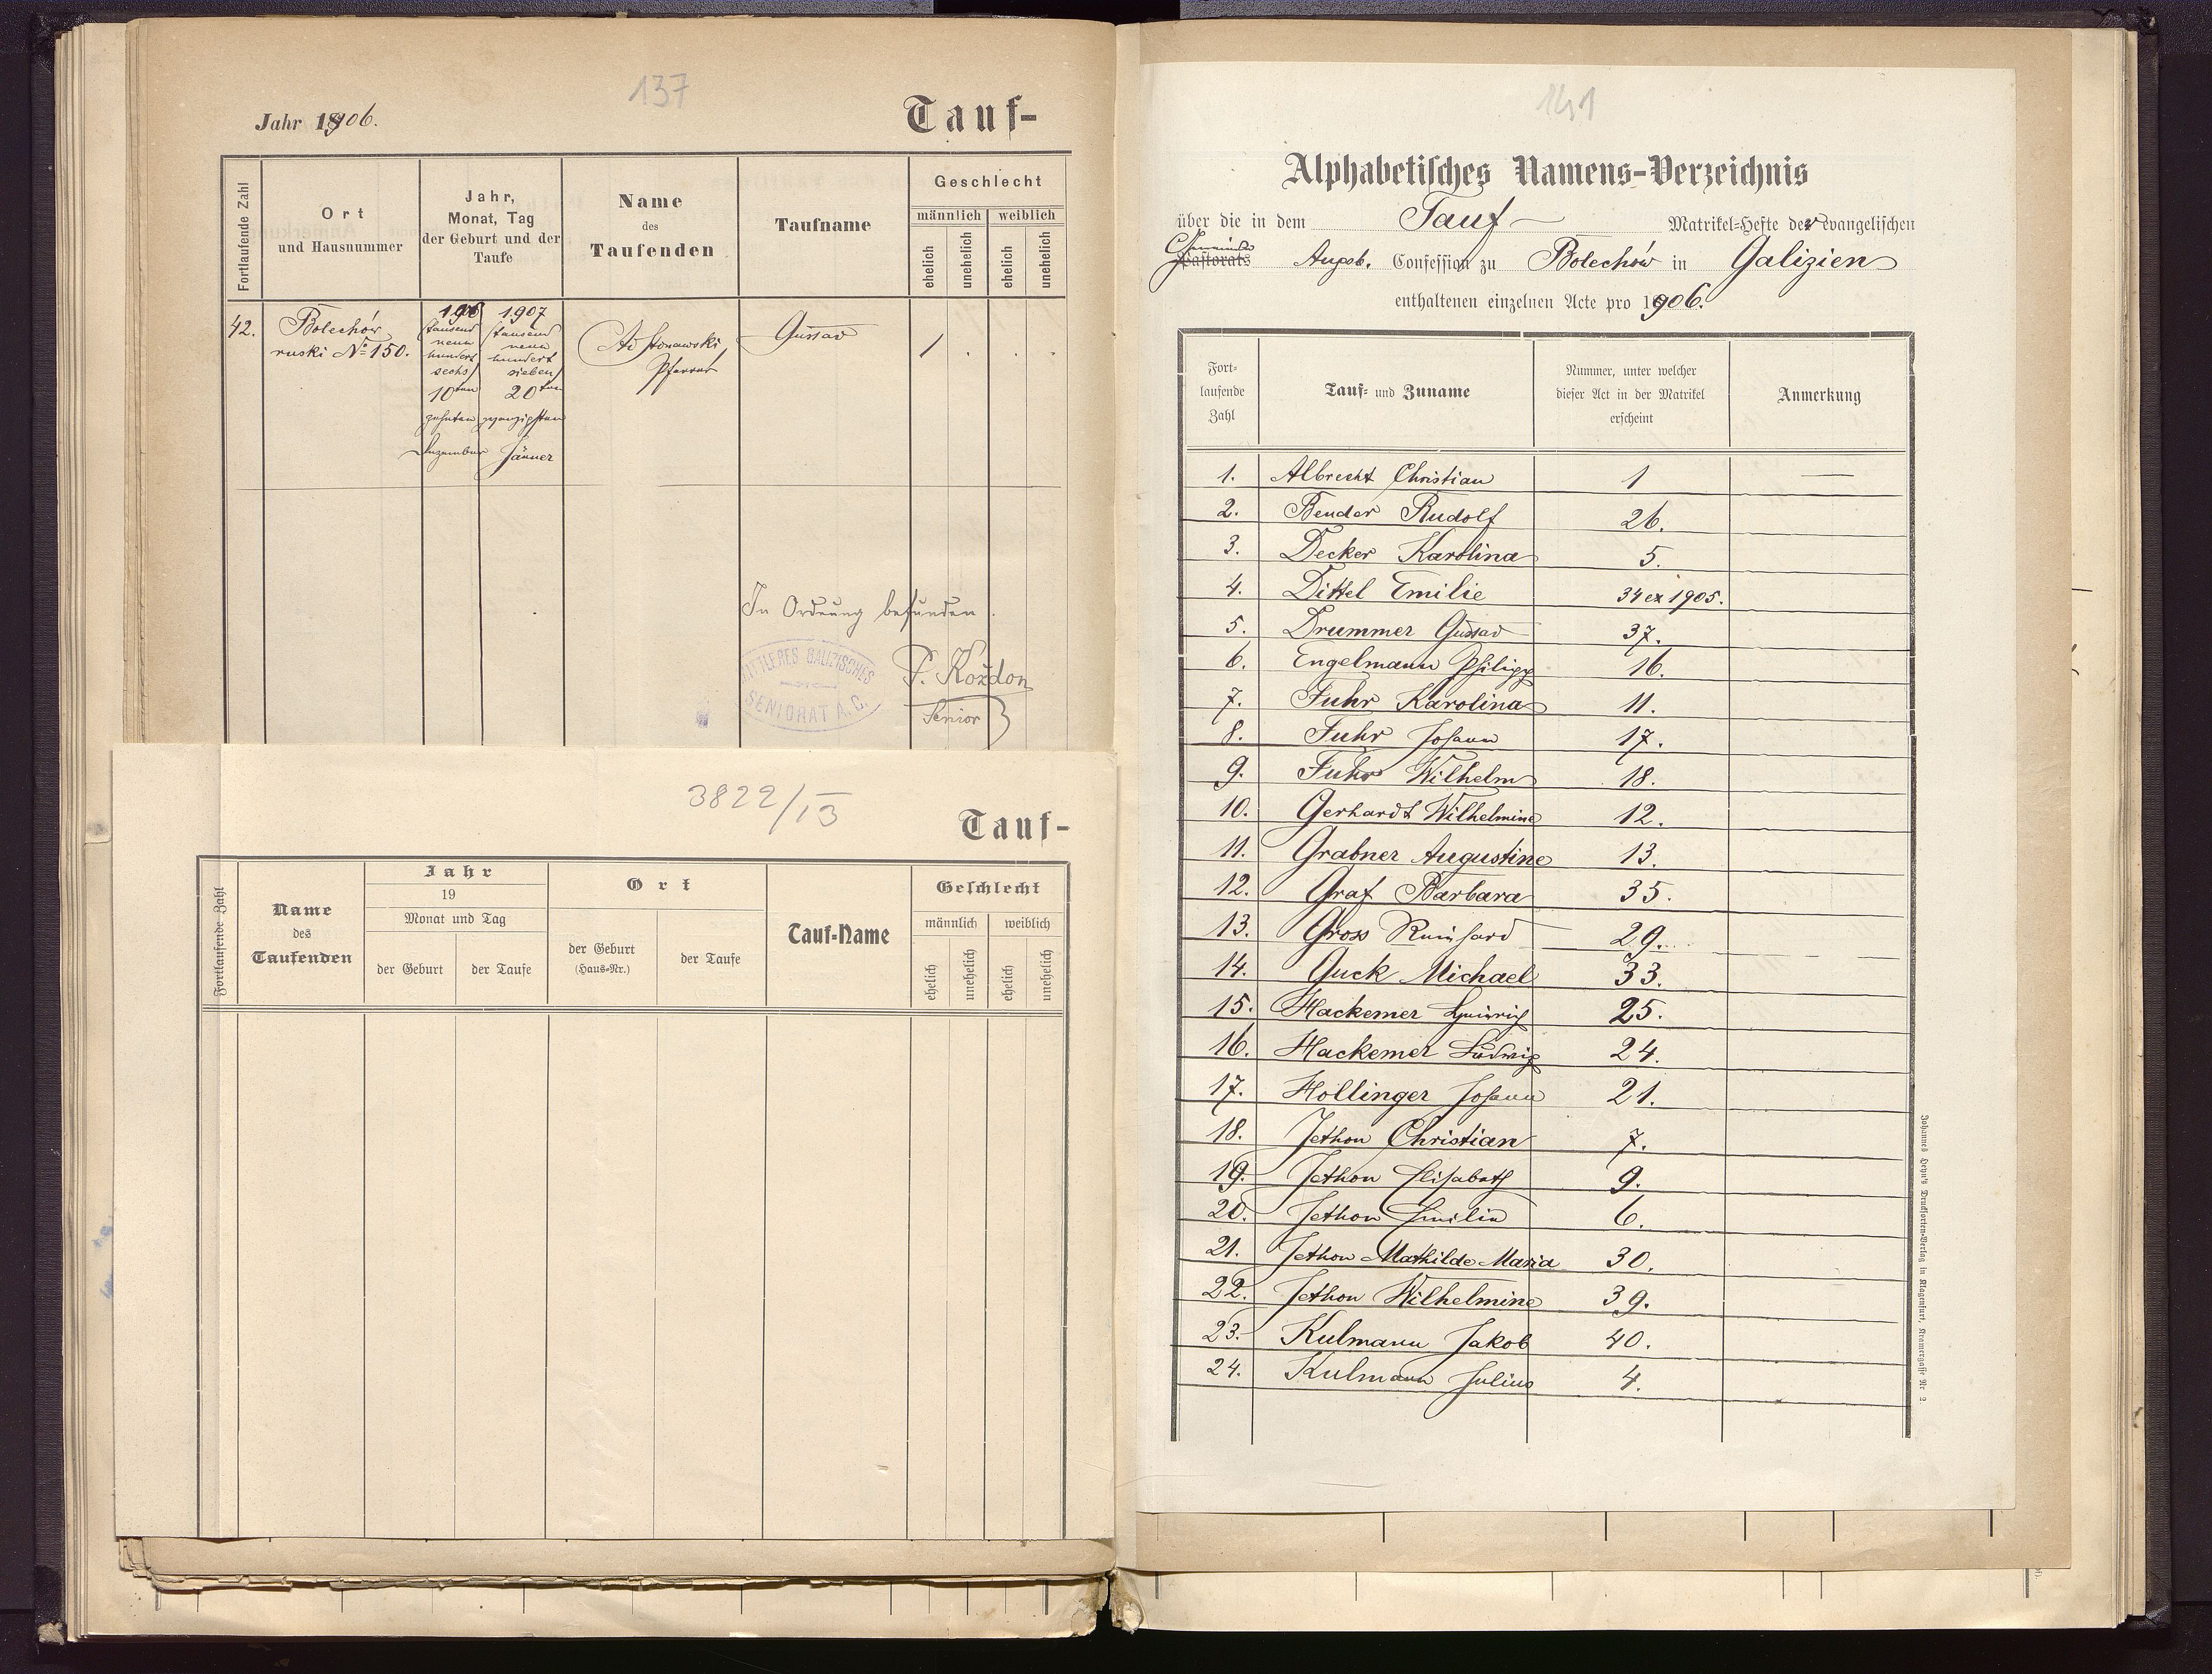 137
Jahr 1906.
Tauf-
Fortlaufende Zahl
Ort
und Hausnummer
Jahr,
Monat, Tag
der Geburt und der
Taufe
Name
des
Taufenden
Taufname
Geschlecht
männlich weiblich
ehelich unehelich ehelich unehelich
42. Bolechów 1906 1907 Gustav
ruski No 150. tausend tausend Pfarrer 1 . . .
neun neun
hundert hundert
sechs sieben
10ten 20ten
zehnten zwanzigsten
Dezember Jänner
In Ordnung befunden.
MITTLERES GALIZISCHES
SENIORAT A. C.
P. Kożdon
Senior
3822/13
Tauf-
Fortlaufende Zahl
Name
des
Taufenden
Jahr
19
Monat und Tag
der Geburt der Taufe
Ort
der Geburt
(Haus-Nr.)
der Taufe
Tauf-Name
Geschlecht
männlich weiblich
ehelich unehelich ehelich unehelich
141
Alphabetisches Namens-Verzeichnis
über die in dem Tauf- Matrikel-Hefte der evangelischen
Gemeinde
Pastorats Augsb. Confession zu Bolechów in Galizien
enthaltenen einzelnen Acte pro 1906.
Fort-
laufende
Zahl
Tauf- und Zuname
Nummer, unter welcher
dieser Act in der Matrikel
erscheint
Anmerkung
1. Albrecht Christian 1 —
2. Bender Rudolf 26.
3. Decker Karolina 5.
4. Dittel Emilie 34 ex 1905.
5. Drummer Gustav 37.
6. Engelmann Philipp 16.
7. Fuhr Karolina 11.
8. Fuhr Johann 17.
9. Fuhr Wilhelm 18.
10. Gerhardt Wilhelmine 12.
11. Grabner Augustine 13.
12. Graf Barbara 35.
13. Gross Reinhard 29.
14. Guck Michael 33.
15. Hackemer Heinrich 25.
16. Hackemer Ludwig 24.
17. Hollinger Johann 21.
18. Jethon Christian 7.
19. Jethon Elisabeth 9.
20. Jethon Emilie 6.
21. Jethon Mathilde Maria 30.
22. Jethon Wilhelmine 39.
23. Kulmann Jakob 40.
24. Kulmann Julius 4.
Johannes Heyn's Drucksorten-Verlag in Klagenfurt, Kramergasse Nr. 2.